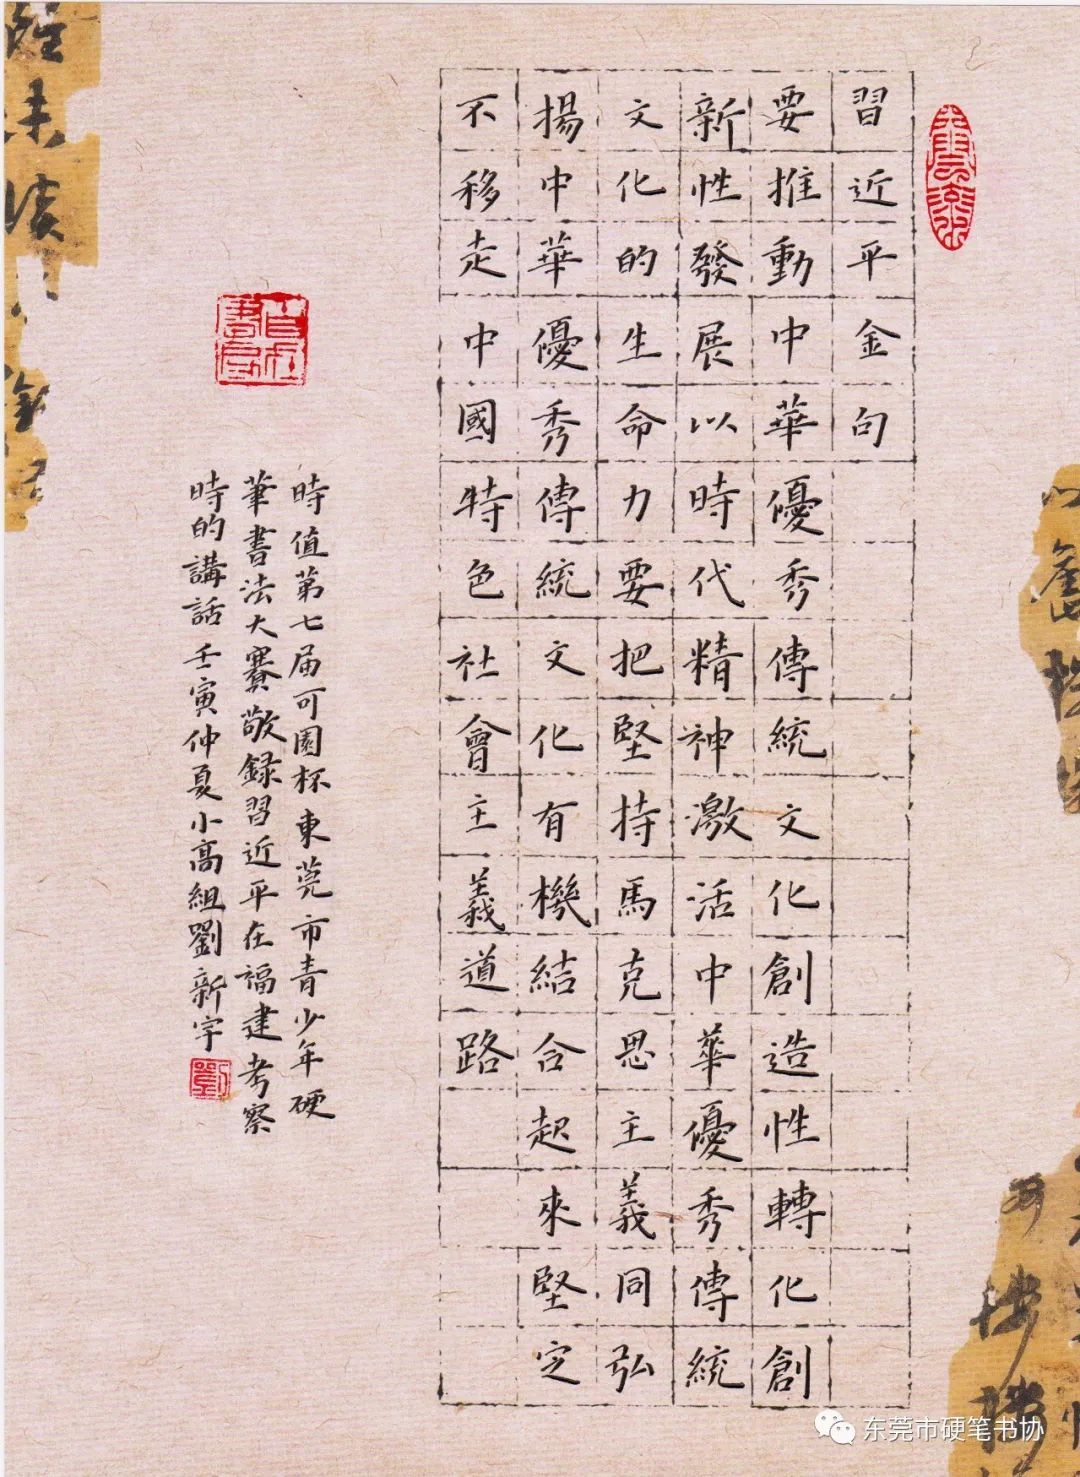 習近平金句
要推動中華優秀傳統文化創造性轉化創
新性發展以時代精神激活中華優秀傳統
文化的生命力要把堅持馬克思主義同弘
揚中華優秀傳統文化有機結合起來堅定
不移走中國特色社會主義道路
時值第七届可園杯東莞市青少年硬
筆書法大賽敬録習近平在福建考察
時的講話壬寅仲夏小高組劉新宇
东莞市硬笔书协